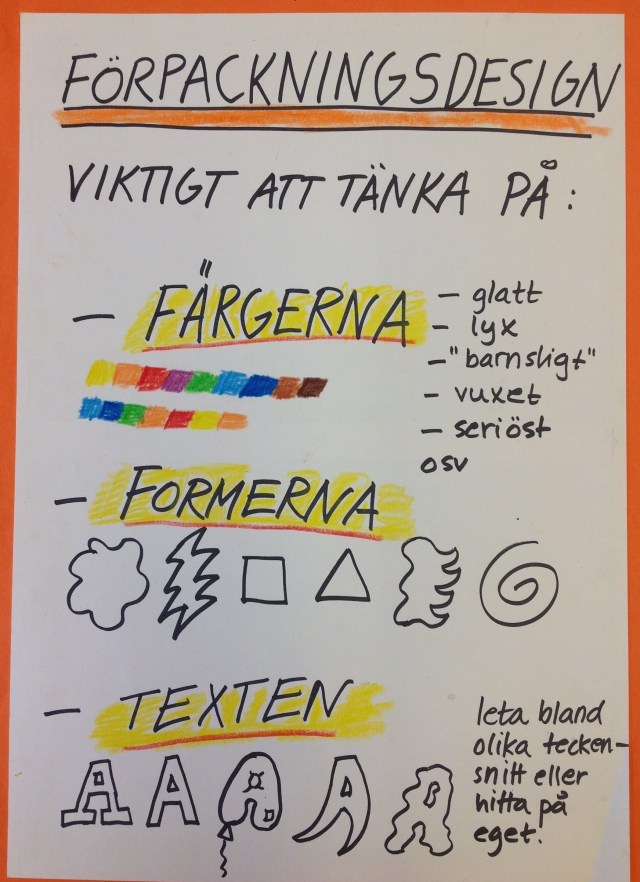 FÖRPACKNINGSDESIGN
VIKTIGT ATT TÄNKA PÅ:
- FÄRGERNA
- glatt
- lyx
- "barnsligt"
- vuxet
- seriöst
osv
- FORMERNA
- TEXTEN
A A A A A
leta bland
olika tecken-
snitt eller
hitta på
eget.